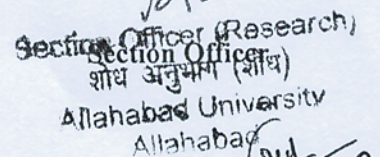 Section Officer (Research)
Section Officer
शोध अनुभाग (शोध)
Allahabad University
Allahabad